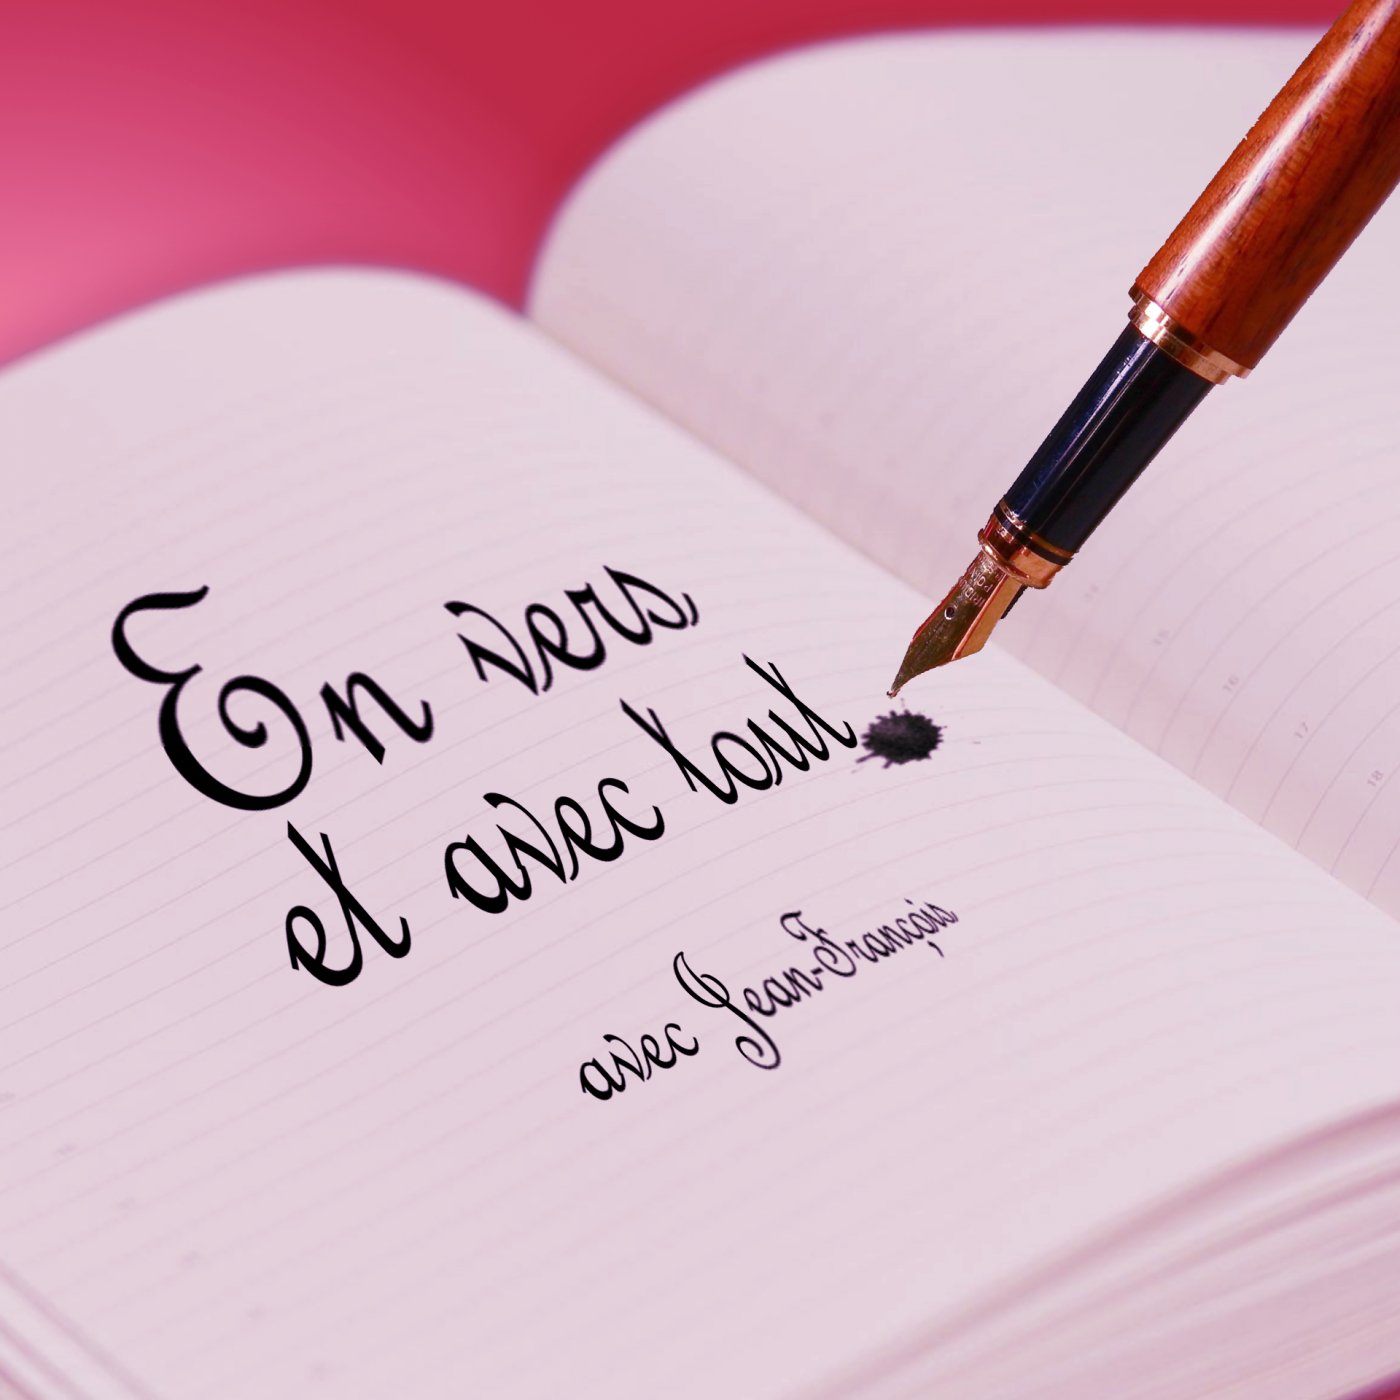 En vers
et avec tout
avec Jean-François
16
17
18